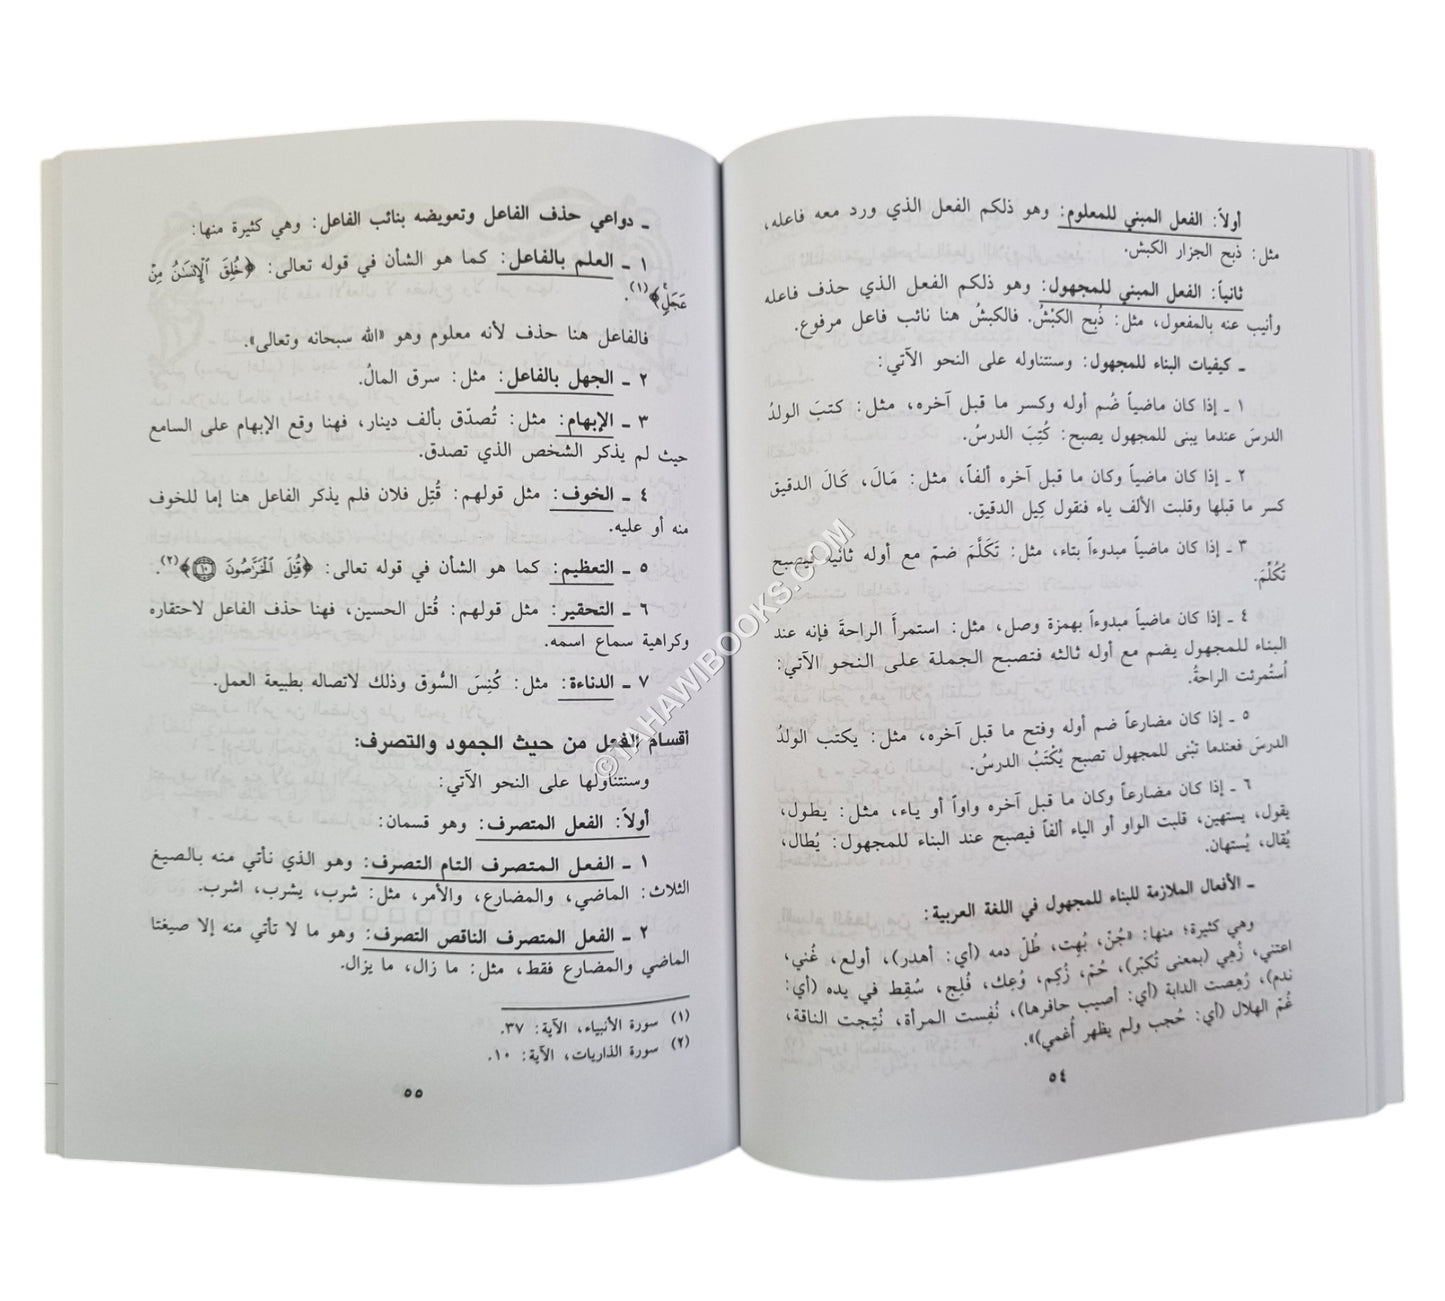 أولاً: الفعل المبني للمعلوم: وهو ذلكم الفعل الذي ورد معه فاعله،
مثل: ذبح الجزار الكبش.
ثانياً: الفعل المبني للمجهول: وهو ذلكم الفعل الذي حذف فاعله
وأنيب عنه بالمفعول، مثل: ذُبِح الكبْشُ. فالكبشُ هنا نائب فاعل مرفوع.
ـ كيفيات البناء للمجهول: وسنتناوله على النحو الآتي:
١ ـ إذا كان ماضياً ضُم أوله وكسر ما قبل آخره، مثل: كتبَ الولدُ
الدرسَ عندما يبنى للمجهول يصبح: كُتِبَ الدرسُ.
٢ ـ إذا كان ماضياً وكان ما قبل آخره ألفاً، مثل: مَالَ، كَالَ الدقيق
كسر ما قبلها وقلبت الألف ياء فنقول كِيل الدقيق.
٣ ـ إذا كان ماضياً مبدوءاً بتاء، مثل: تَكَلَّمَ ضمّ مع أوله ثانيه فيصبح
تُكُلِّمَ.
٤ ـ إذا كان ماضياً مبدوءاً بهمزة وصل، مثل: استمرأَ الراحةَ فإنه عند
البناء للمجهول يضم مع أوله ثالثه فتصبح الجملة على النحو الآتي:
اُستُمرئت الراحةُ.
٥ ـ إذا كان مضارعاً ضم أوله وفتح ما قبل آخره، مثل: يكتب الولدُ
الدرسَ فعندما تبْنى للمجهول تصبح يُكْتَبُ الدرسُ.
٦ ـ إذا كان مضارعاً وكان ما قبل آخره واواً أو ياء، مثل: يطول،
يقول، يستهين، قلبت الواو أو الياء ألفاً فيصبح عند البناء للمجهول: يُطال،
يُقال، يُستهان.
ـ الأفعال الملازمة للبناء للمجهول في اللغة العربية:
وهي كثيرة؛ منها: «جُنّ، بُهِت، طُلّ دمه (أي: أهدر)، أولع، غُني،
اعتني، زُهِي (بمعنى تُكبّر)، حُمّ، زُكِم، وُعِك، فُلِج، سُقِط في يده (أي:
ندم)، رُهِصت الدابة (أي: أصيب حافرها)، نُفِست المرأة، نُتِجت الناقة،
غُمّ الهلال (أي: حُجب ولم يظهر أُغمي)».
٥٤
ـ دواعي حذف الفاعل وتعويضه بنائب الفاعل: وهي كثيرة منها:
١ ـ العلم بالفاعل: كما هو الشأن في قوله تعالى: ﴿خُلِقَ ٱلْإِنسَٰنُ مِنْ
عَجَلٍ﴾(١).
فالفاعل هنا حذف لأنه معلوم وهو «الله سبحانه وتعالى».
٢ ـ الجهل بالفاعل: مثل: سرق المالُ.
٣ ـ الإبهام: مثل: تُصدّق بألف دينار، فهنا وقع الإبهام على السامع
حيث لم يذكر الشخص الذي تصدق.
٤ ـ الخوف: مثل قولهم: قُتِل فلان فلم يذكر الفاعل هنا إما للخوف
منه أو عليه.
٥ ـ التعظيم: كما هو الشأن في قوله تعالى: ﴿قُتِلَ ٱلْخَرَّٰصُونَ ١٠﴾(٢).
٦ ـ التحقير: مثل قولهم: قُتل الحسين، فهنا حذف الفاعل لاحتقاره
وكراهية سماع اسمه.
٧ ـ الدناءة: مثل: كُنِسَ السُّوق وذلك لاتصاله بطبيعة العمل.
أقسام الفعل من حيث الجمود والتصرف:
وسنتناولها على النحو الآتي:
أولاً: الفعل المتصرف: وهو قسمان:
١ ـ الفعل المتصرف التام التصرف: وهو الذي نأتي منه بالصيغ
الثلاث: الماضي، والمضارع، والأمر، مثل: شرب، يشرب، اشرب.
٢ ـ الفعل المتصرف الناقص التصرف: وهو ما لا تأتي منه إلا صيغتا
الماضي والمضارع فقط، مثل: ما زال، ما يزال.
(١) سورة الأنبياء، الآية: ٣٧.
(٢) سورة الذاريات، الآية: ١٠.
٥٥
©TAHAWIBOOKS.COM